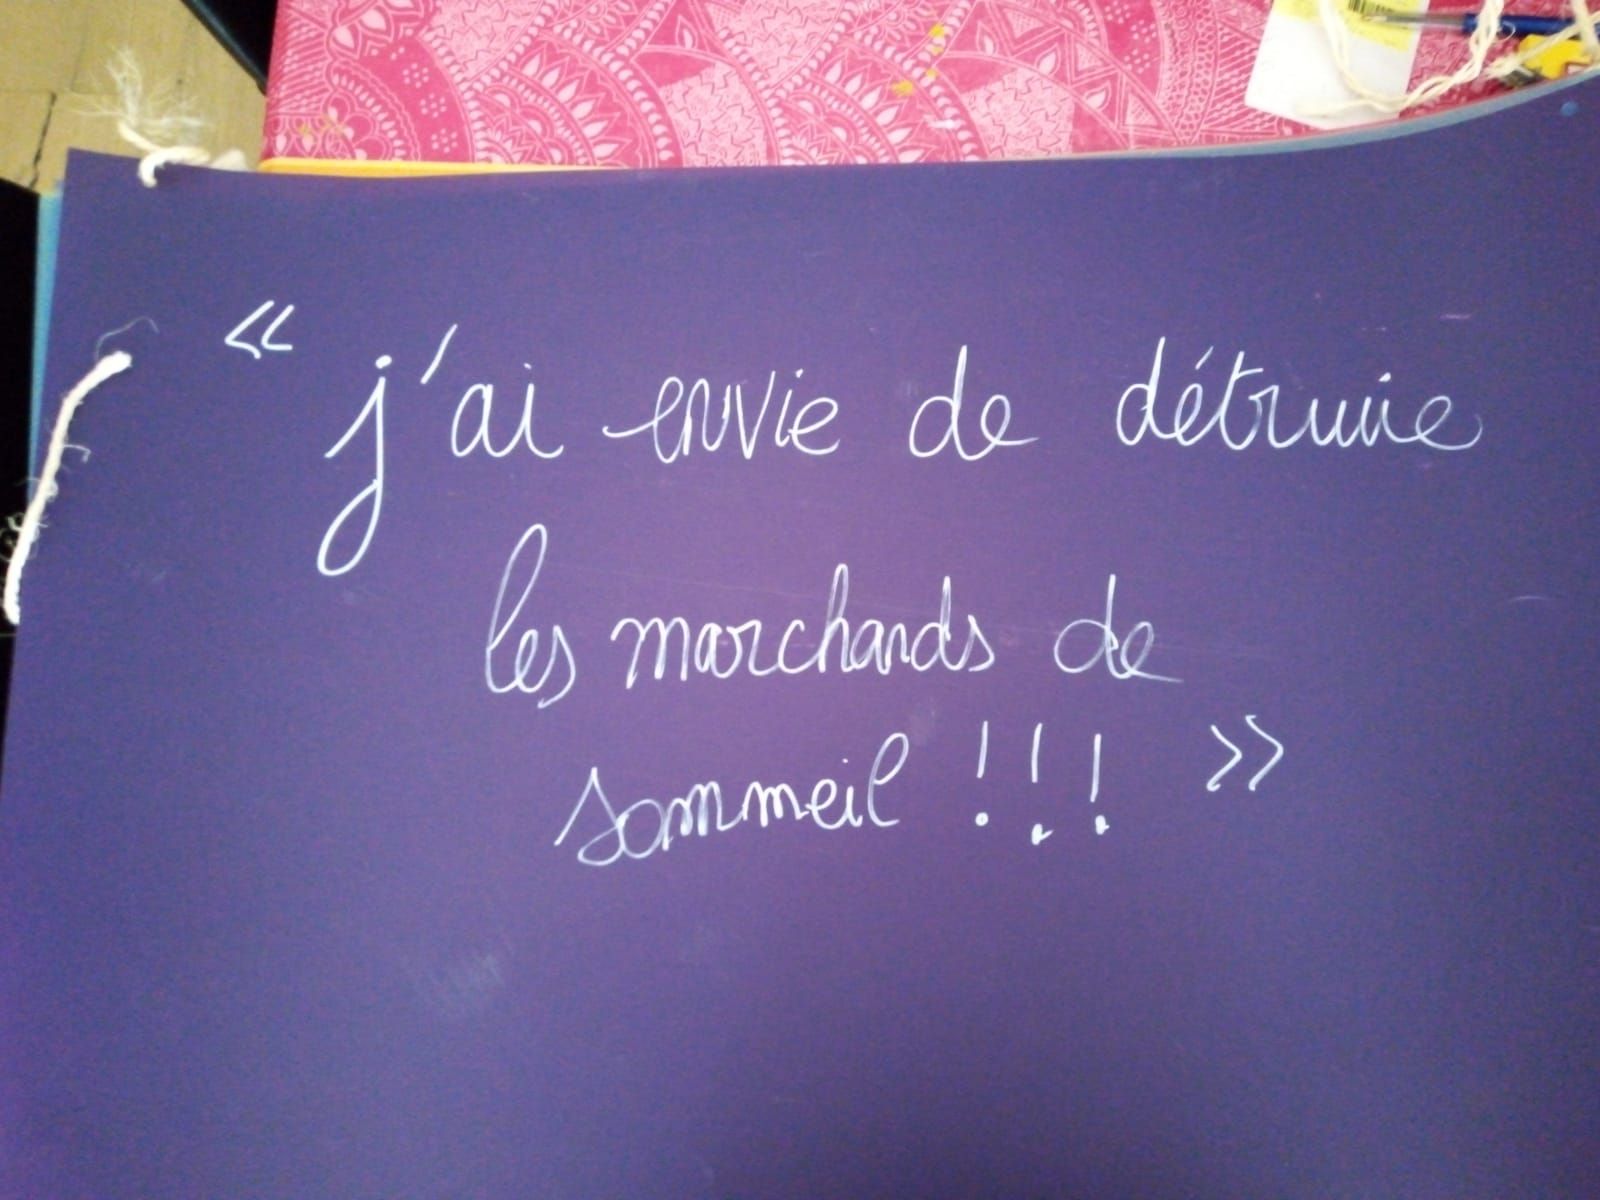 « j'ai envie de détruire
les marchands de
sommeil !!! »